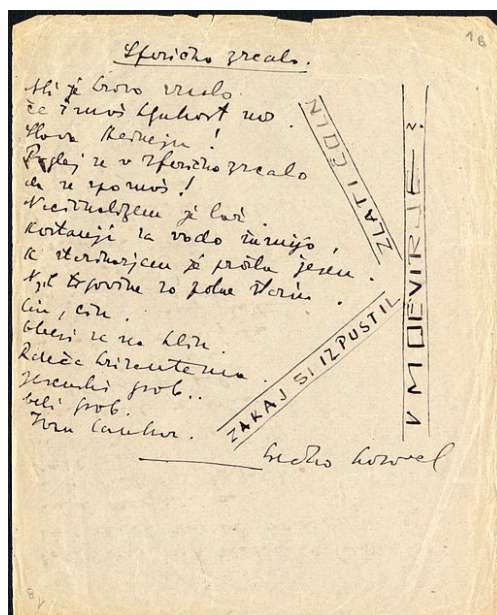 Sferično zrcalo.
Ali je krivo zrcalo
če imaš kljukast nos.
Slava Heineju!
Poglej se v sferično zrcalo
da se spoznaš!
Nacionalizem je laž.
Kostanji za vodo šumijo,
k starinarjem je prišla jesen.
Njih trgovine so polne starin.
Cin, cin.
Obesi se na klin.
Rdeča krizantema.
Jesenski grob..
beli grob.
Ivan Cankar.
ZAKAJ SI IZPUSTIL
ZLATI ČOLN
V MOČVIRJE?
Srečko Kosovel